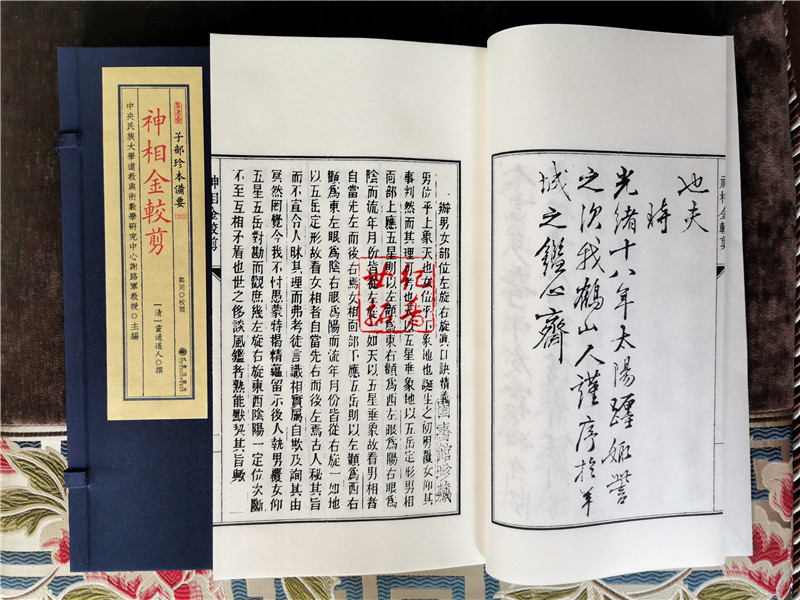 子部珍本備要
神相金較剪
中央民族大學道教與術數學研究中心謝路軍教授◎主編
鄭同◎校閱
[清]通道人◎撰
也夫
時
光緒十八年太陽躔娵訾
之次我鶴山人謹序於羊
城之鑑心齋
神相金較剪
一辦男女部位左旋右旋真口訣精義
男位乎上象天也女位乎下象地也誕生之初男覆女仰其
事判然而其理可考也天以五星垂象地以五岳定形男相
面部上應五星則以左顴爲東右顴爲西左眼爲陽右眼爲
陰而流年月份皆從左旋一如天以五星垂象故看男相者
自當先左而後右焉女相面部下應五岳則以左顴爲西右
顴爲東左眼爲陰右眼爲陽而流年月份皆從右旋一如地
以五岳定形故看女相者自當先右而後左焉古人秘其旨
而不宣令人昧其理而弗考徒言識相實屬自欺及詢其由
冥然罔覺今我不忖愚蒙特揭精蘊留示後人執男覆女仰
五星五岳對勘而觀庶幾左旋右旋東西陰陽一定位次斷
不至互相矛盾也世之侈談風鑑者熟能默契其旨歟
神相金較剪
圖書館珍藏
世紀
拓者